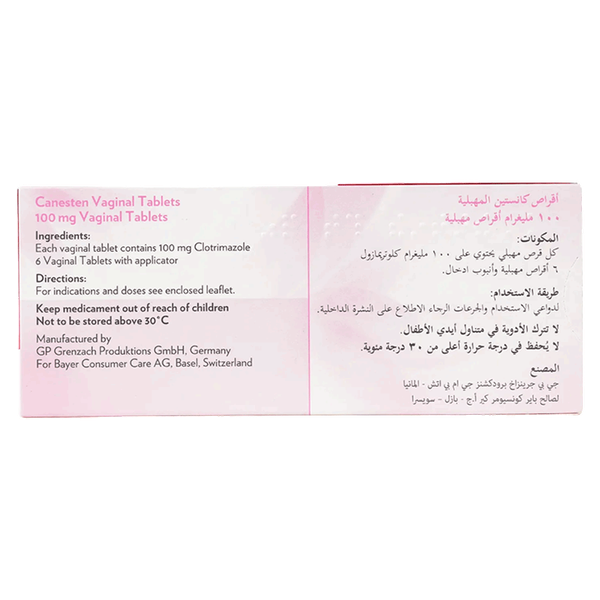 Canesten Vaginal Tablets
100 mg Vaginal Tablets
Ingredients:
Each vaginal tablet contains 100 mg Clotrimazole
6 Vaginal Tablets with applicator
Directions:
For indications and doses see enclosed leaflet.
Keep medicament out of reach of children
Not to be stored above 30°C
Manufactured by
GP Grenzach Produktions GmbH, Germany
For Bayer Consumer Care AG, Basel, Switzerland
أقراص كانستين المهبلية
١٠٠ مليغرام أقراص مهبلية
المكونات:
كل قرص مهبلي يحتوي على ١٠٠ مليغرام كلوتريمازول
٦ أقراص مهبلية وأنبوب ادخال.
طريقة الاستخدام:
لدواعي الاستخدام والجرعات الرجاء الاطلاع على النشرة الداخلية.
لا تترك الأدوية في متناول أيدي الأطفال.
لا يُحفظ في درجة حرارة أعلى من ٣٠ درجة مئوية.
المصنع
جي بي جرينزاخ برودكشنز جي ام بي اتش - المانيا
لصالح باير كونسيومر كير أ.ج - بازل - سويسرا